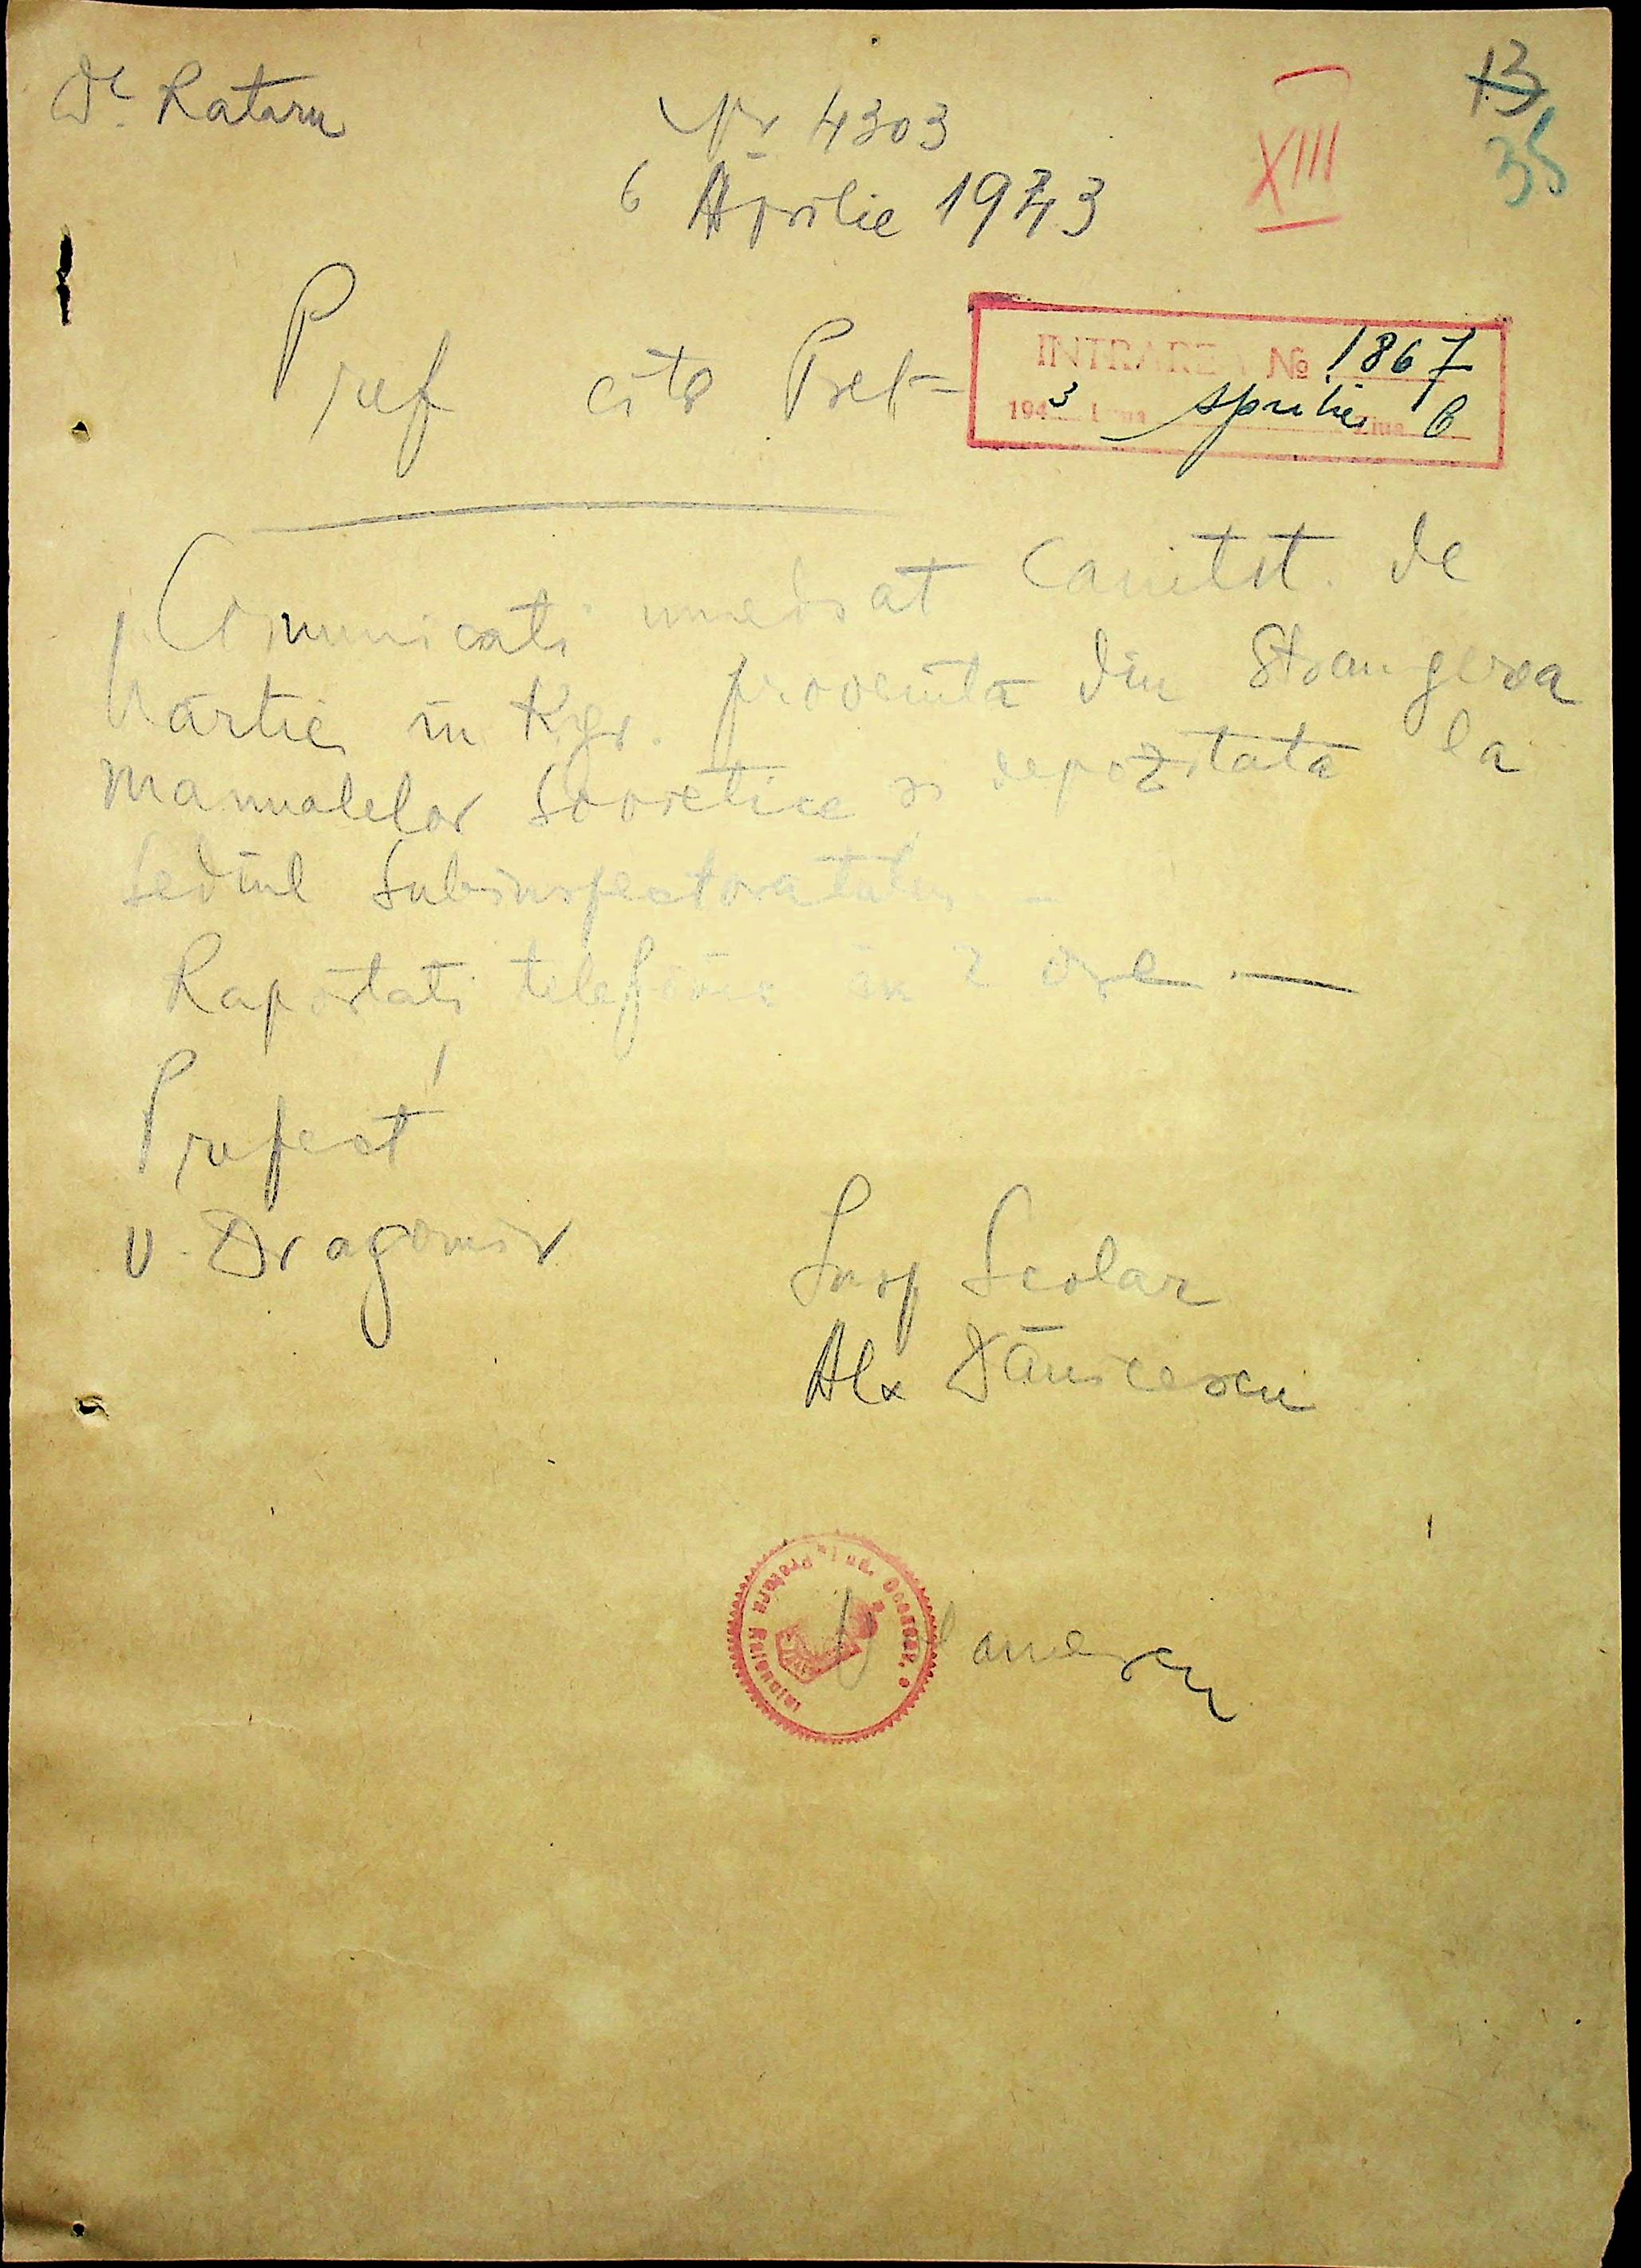 Dl Rataru
Nr 4303
6 Aprilie 1943
XIII
13
35
Pref cito Pret =
INTRARE No 1867
1943 Luna Aprilie Ziua 6
Comunicati imediat cantitat. de
hartie in Kgr. provenita din Strangerea
Manualelor Sovietice si depozitata la
Sediul Subinspectoratului -
Raportati telefonic in 2 ore —
Prefect
v. Dragomir
Insp Scolar
Alx Dănicescu